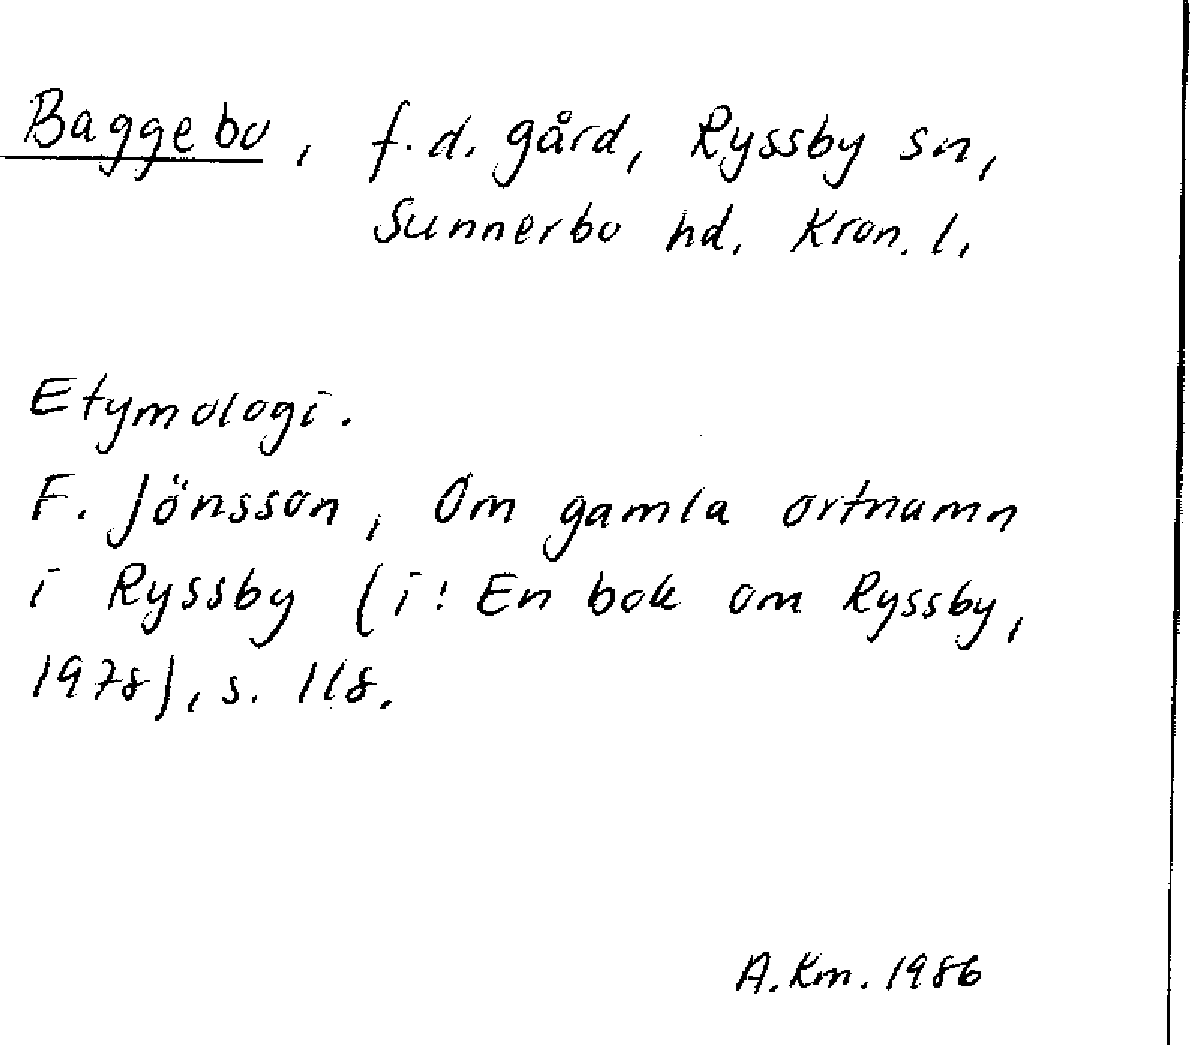 Baggebo, f.d. gård, Ryssby sn,
Sunnerbo hd. Kron. l.
Etymologi.
F. Jönsson, Om gamla ortnamn
i Ryssby (i: En bok om Ryssby,
1978), s. 118.
A.Km. 1986